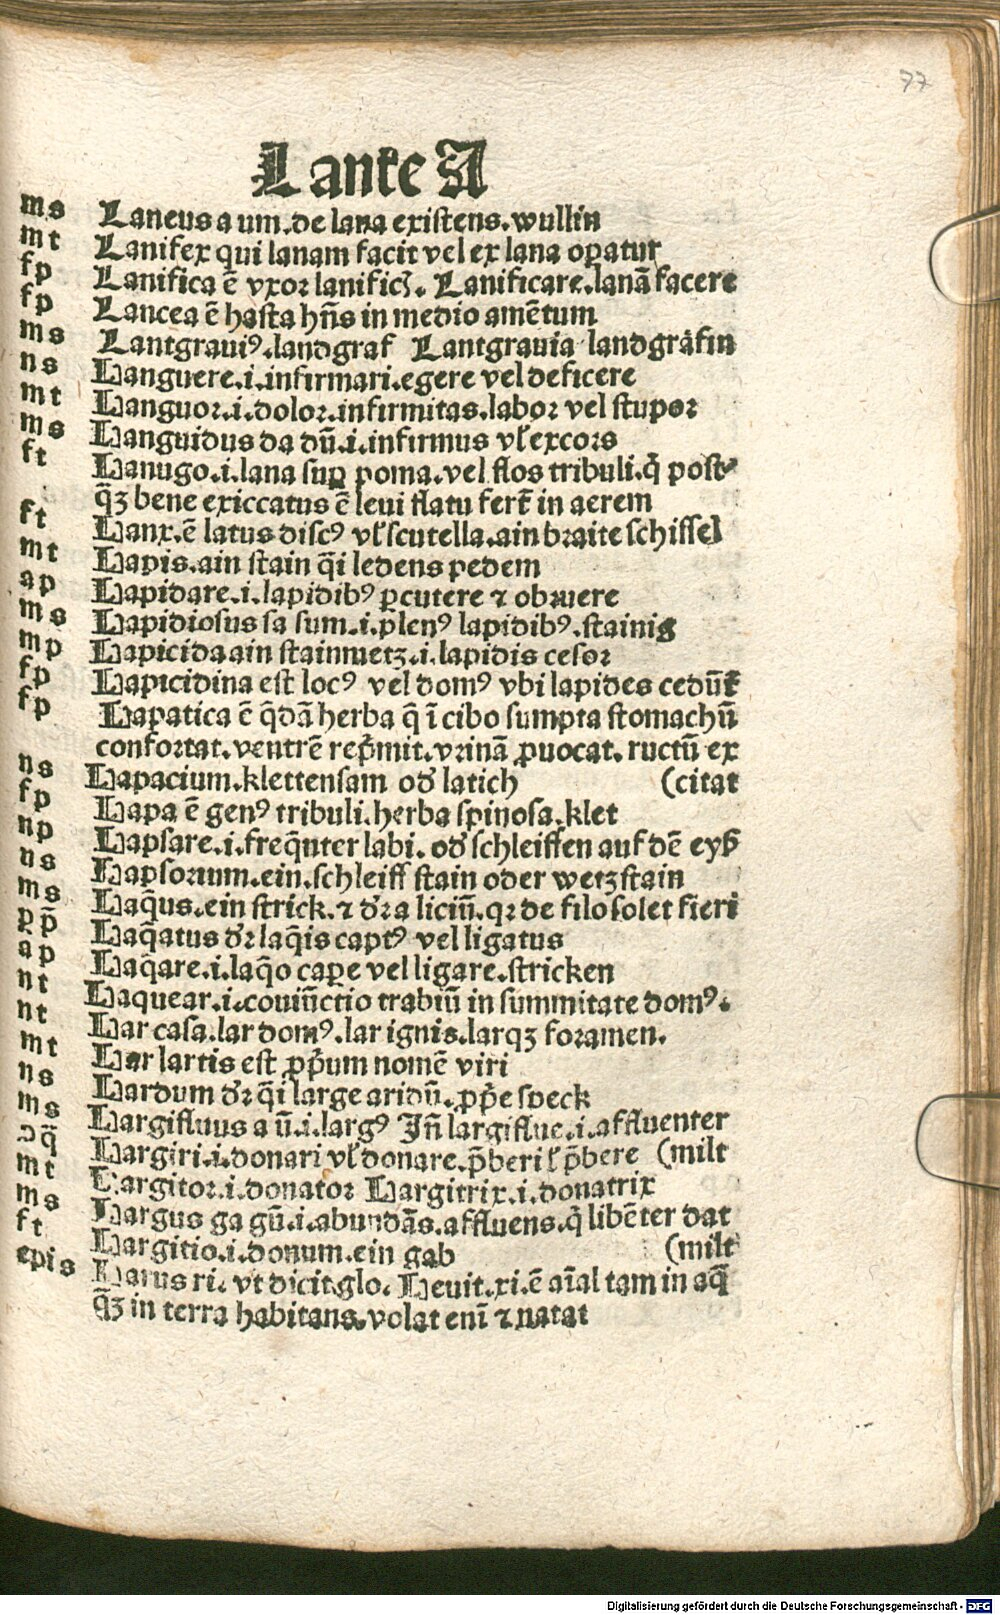 77
Lanke A
ms Laneus a um.de lana existens.wullin
mt Lanifex qui lanam facit vel ex lana oꝑatur
fp Lanifica ē vxor lanificꝭ. Lanificare.lanā facere
fp Lancea ē hasta hn̄s in medio amētum
ms Lantgrauiꝰ.landgraf Lantgrauia landgräfin
ns Languere.i.infirmari.egere vel deficere
mt Languor.i.dolor.infirmitas.labor vel stupor
ms Languidus da dū.i.infirmus vl̓ excors
ft Lanugo.i.lana suꝑ poma.vel flos tribuli.q̄ post
q̄ꝫ bene exiccatus ē leui flatu fert̄ in aerem
ft Lanx.ē latus discꝰ vl̓ scutella.ain braite schissel
mt Lapis.ain stain q̄i ledens pedem
ap Lapidare.i.lapidibꝰ ꝑcutere ⁊ obruere
ms Lapidiosus sa sum.i.plenꝰ lapidibꝰ.stainig
mp Lapicida ain stainmetz.i.lapidis cesor
fp Lapicidina est locꝰ vel domꝰ vbi lapides cedūt̄
fp Lapatica ē q̄dā herba q̄ ī cibo sumpta stomachū
confortat.ventrē rep̄mit.vrinā ꝓuocat.ructū ex
ns Lapacium.klettensam od̓ latich (citat
fp Lapa ē genꝰ tribuli.herba spinosa.klet
np Lapsare.i.freq̄nter labi.od̓ schleiffen auf dē eyß
ns Lapsorium.ein.schleiff stain oder wetzstain
ms Laq̄us.ein strick.⁊ d̓r a liciū.qꝛ de filo solet fieri
ꝑp̄ Laq̄atus d̓r laq̄is captꝰ vel ligatus
ap Laq̄are.i.laq̄o caꝑe vel ligare.stricken
nt Laquear.i.coniūctio trabiū in summitate domꝰ.
nt Lar casa.lar domꝰ.lar ignis.larqꝫ foramen.
mt Lar lartis est ꝓp̄um nomē viri
ns Lardum d̓r q̄i large aridū.ꝓp̄e speck
ms Largifluus a ū.i.largꝰ Jn̄ largiflue.i.affluenter
ↄq̄ Largiri.i.donari vl̓ donare.p̄beri l̓ p̄bere (milt
mt Largitor.i.donator Largitrix.i.donatrix
ms Largus ga gū.i.abundās.affluens.q̄ libēter dat
ft Largitio.i.donum.ein gab (milt
epis Larus ri. vt dicit glo. Leuit.xi.ē aīal tam in aq̄
q̄ꝫ in terra habitans.volat enī ⁊ natat
Digitalisierung gefördert durch die Deutsche Forschungsgemeinschaft - DFG